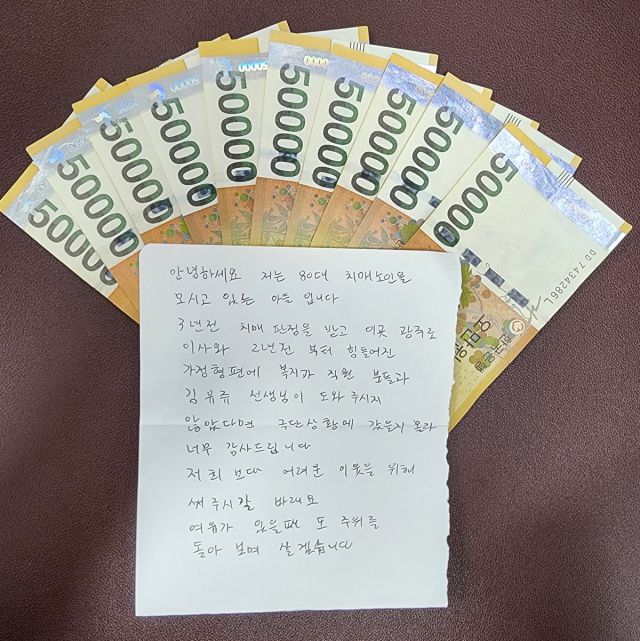 50000
50000
50000
50000
50000
50000
50000
50000
50000
50000
DD7434286L
오만원
안녕하세요 저는 80대 치매노인을
모시고 있는 아들 입니다
3년전 치매 판정을 받고 이곳 광주로
이사와 2년전 부터 힘들어진
가정형편에 복지가 직원 분들과
김유쥬 선생님이 도와주시지
않았다면 극단상황에 갔을지 몰라
너무 감사드립니다
저희 보다 어려운 이웃을 위해
써주시길 바래요
여유가 있을때 또 주위를
돌아 보며 살겠습니다